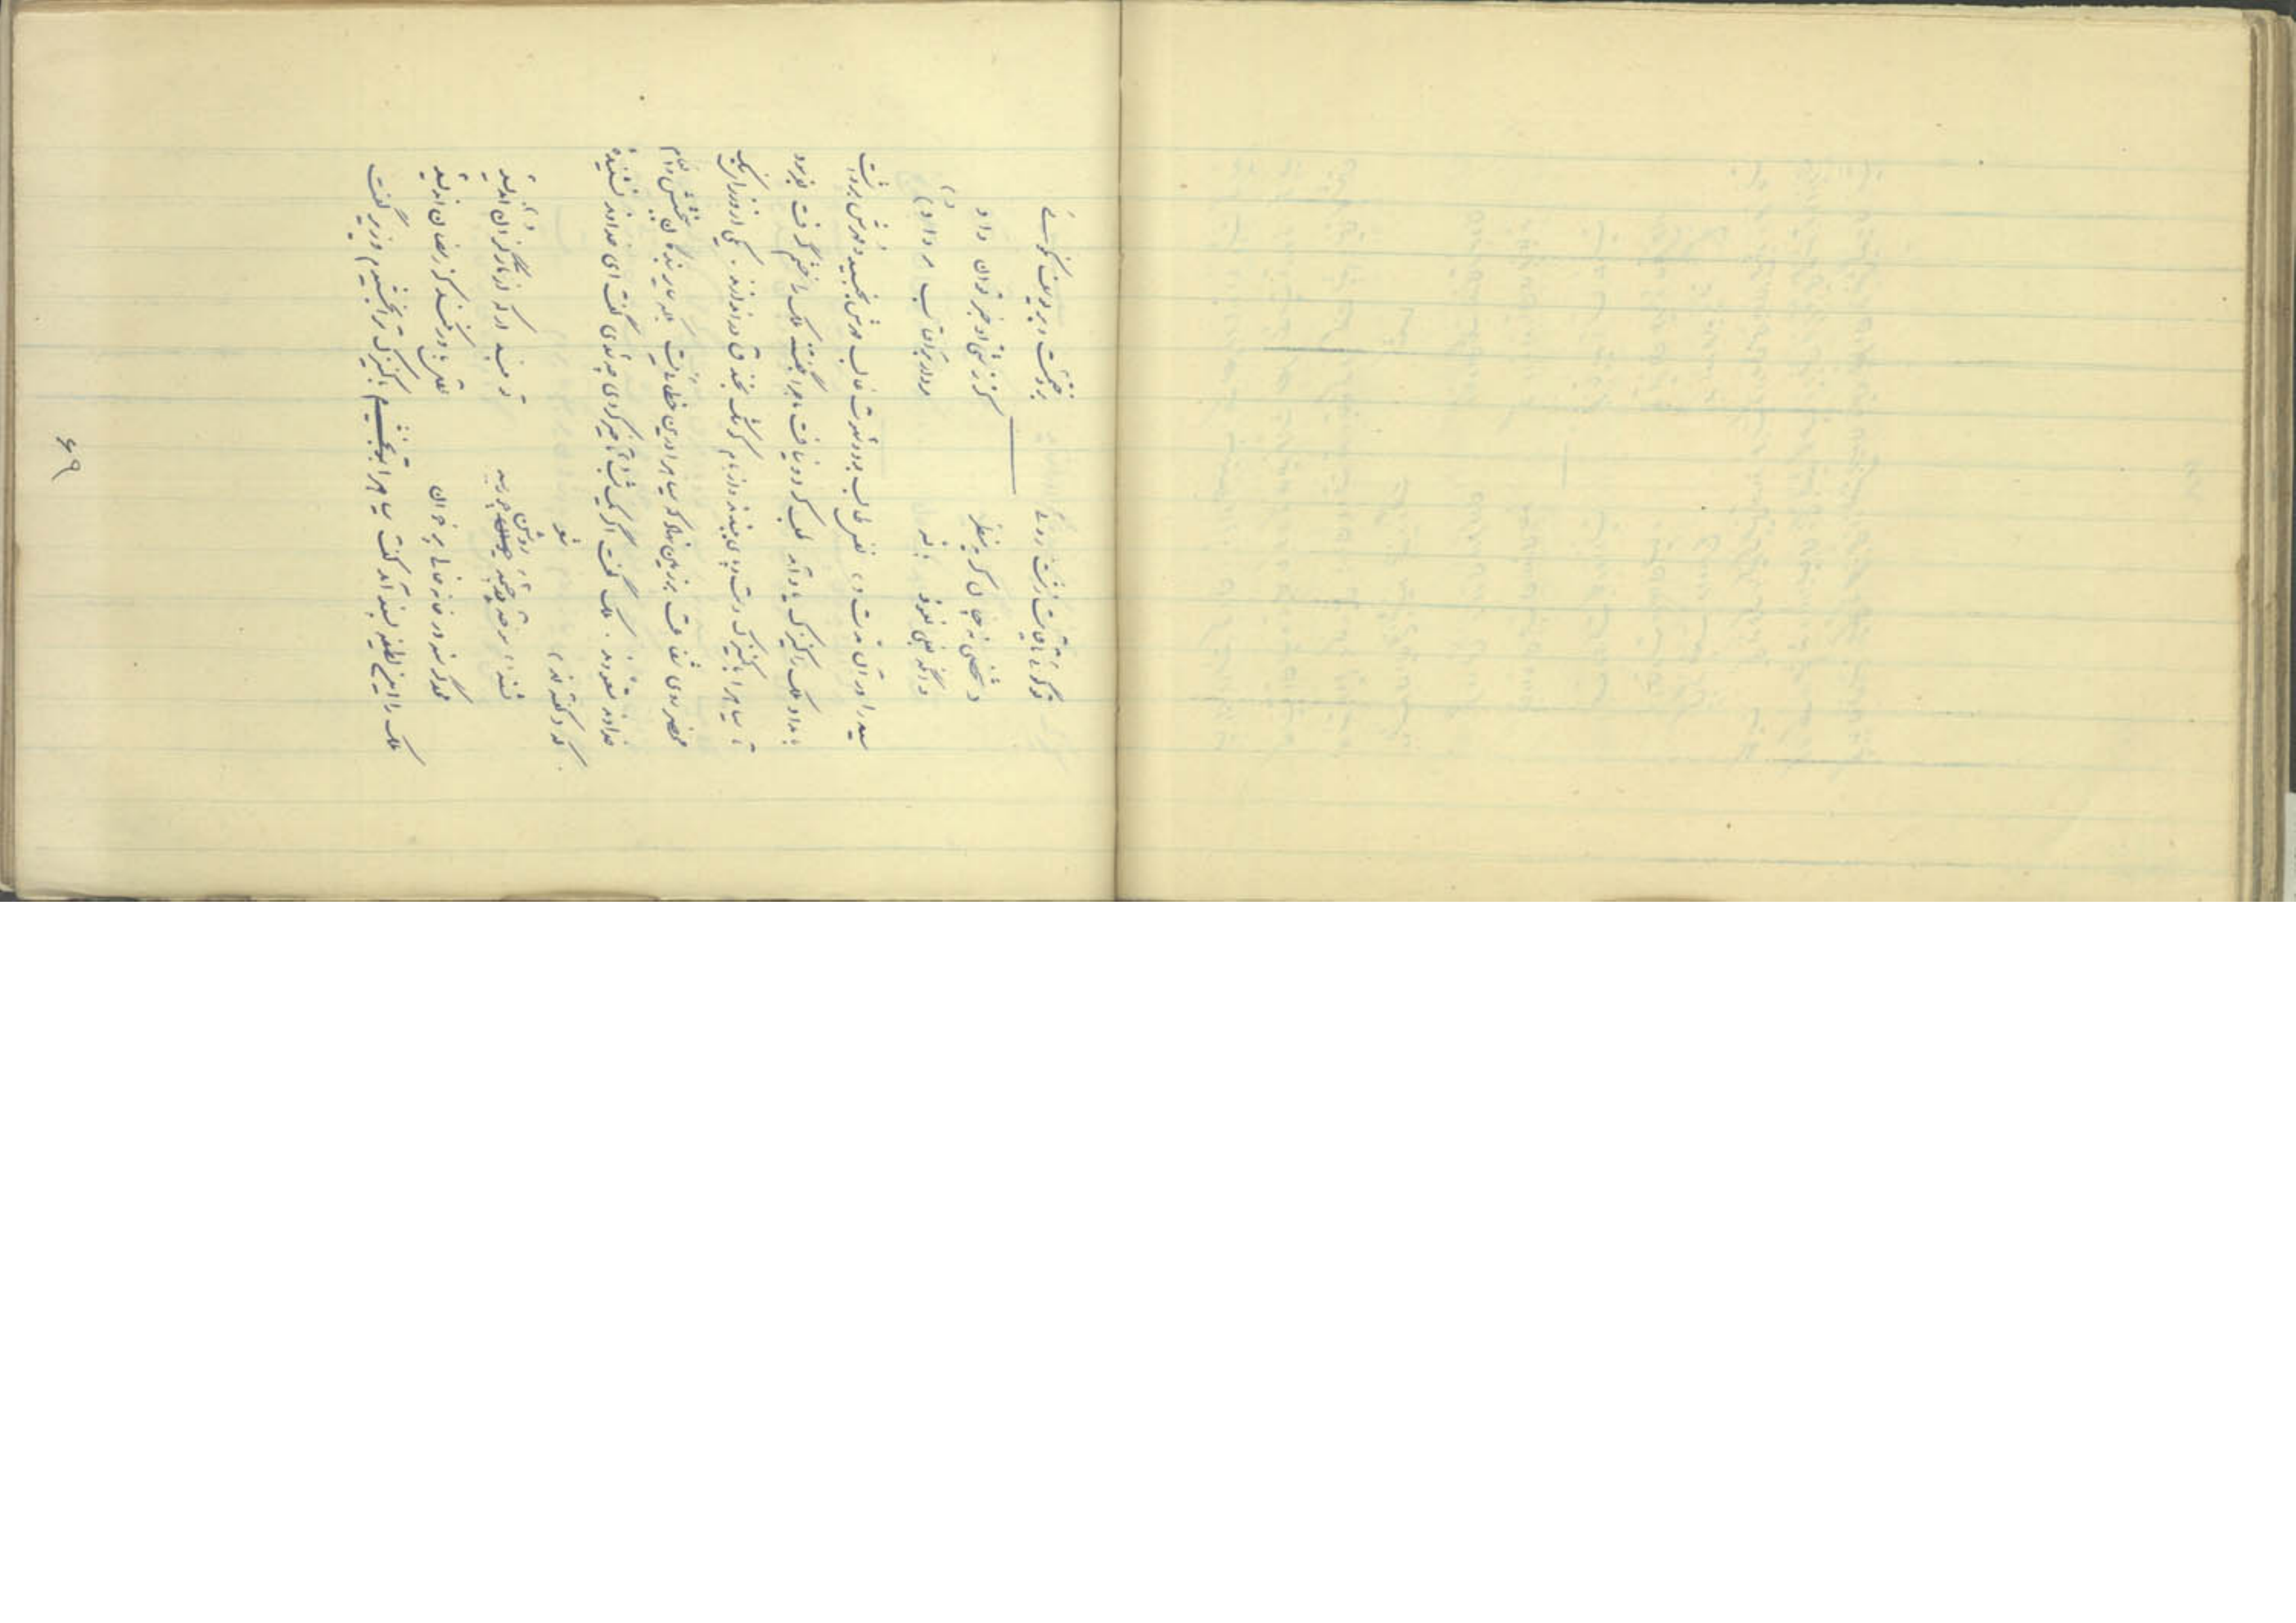 تو گوئی تا قیامت زشت روئی    برو ختمست و بر یوسف نکوئی
شخصی نه چنان کریه منظر    کز زشتی او خبر توان داد
وانگه بغلی نعوذ بالله    مردار بآفتاب مرداد
سیه را در آن مدت نفس طالب بود و شهوت غالب مهرش بجنبید و مهرش برداشت
بامداد ملک کنیزک را یاد آمد طلب کرد و نیافت ماجرا بگفتند ملک را خشم گرفت بفرمود
تا سیاه را با کنیزک دست و پای ببندند و از بام کوشک بخندق در اندازند . یکی از وزرا نیک
محضر روی شفاعت بر زمین نهاد که سیاه را درین خطا نیست که سایر بندگان بخشش و انعام
خداوند متعودند . ملک گفت اگر یک شب تأخیر کردی چه شدی گفت ای خداوند نشنیدهٔ
که گفته اند
تشنهٔ سوخته بر چشمهٔ روشن چو رسید    تو مپندار که از اندیشد
ملحد گرسنه در خانه خالی بر خوان    عقل باور نکند کز رمضان اندیشد
ملک را این لطیفه پسند آمد گفت سیاه را بتو بخشیدم کنیزک وزیر گفت
۶۹